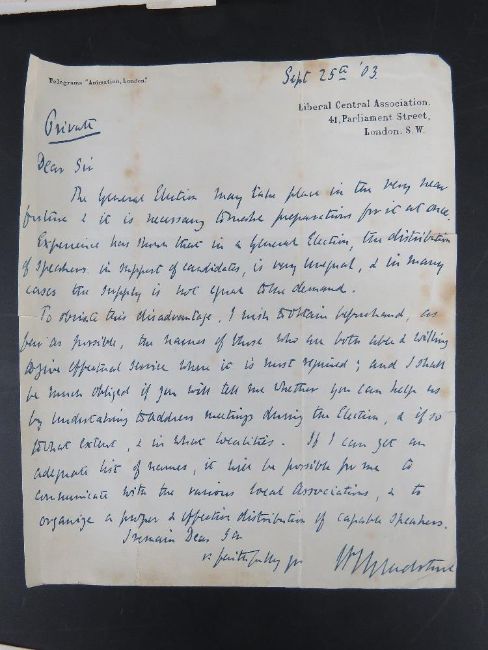 Telegrams "Animation, London."
Sept 25th '03
Liberal Central Association,
41, Parliament Street,
London. S.W.
Private
Dear Sir
The General Election may take place in the very near
future & it is necessary to make preparations for it at once.
Experience has shown that in a General Election, the distribution
of speakers in support of candidates, is very unequal, & in many
cases the supply is not equal to the demand.
To obviate this disadvantage, I wish to obtain beforehand, as
far as possible, the names of those who are both able & willing
to give effectual service where it is most required; and I shall
be much obliged if you will tell me whether you can help us
by undertaking to address meetings during the Election, & if so
to what extent, & in what localities. If I can get an
adequate list of names, it will be possible for me to
communicate with the various local Associations, & to
organize a proper & effective distribution of capable speakers.
I remain Dear Sir
v. faithfully yrs
Gladstone